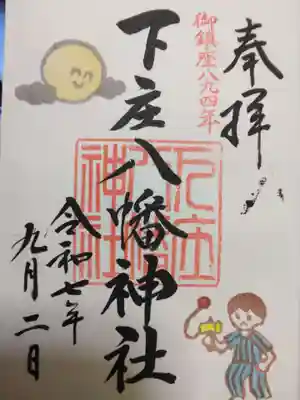 奉拝
御鎮座八九四年
下庄八幡神社
下庄八幡神社
令和七年
九月二日